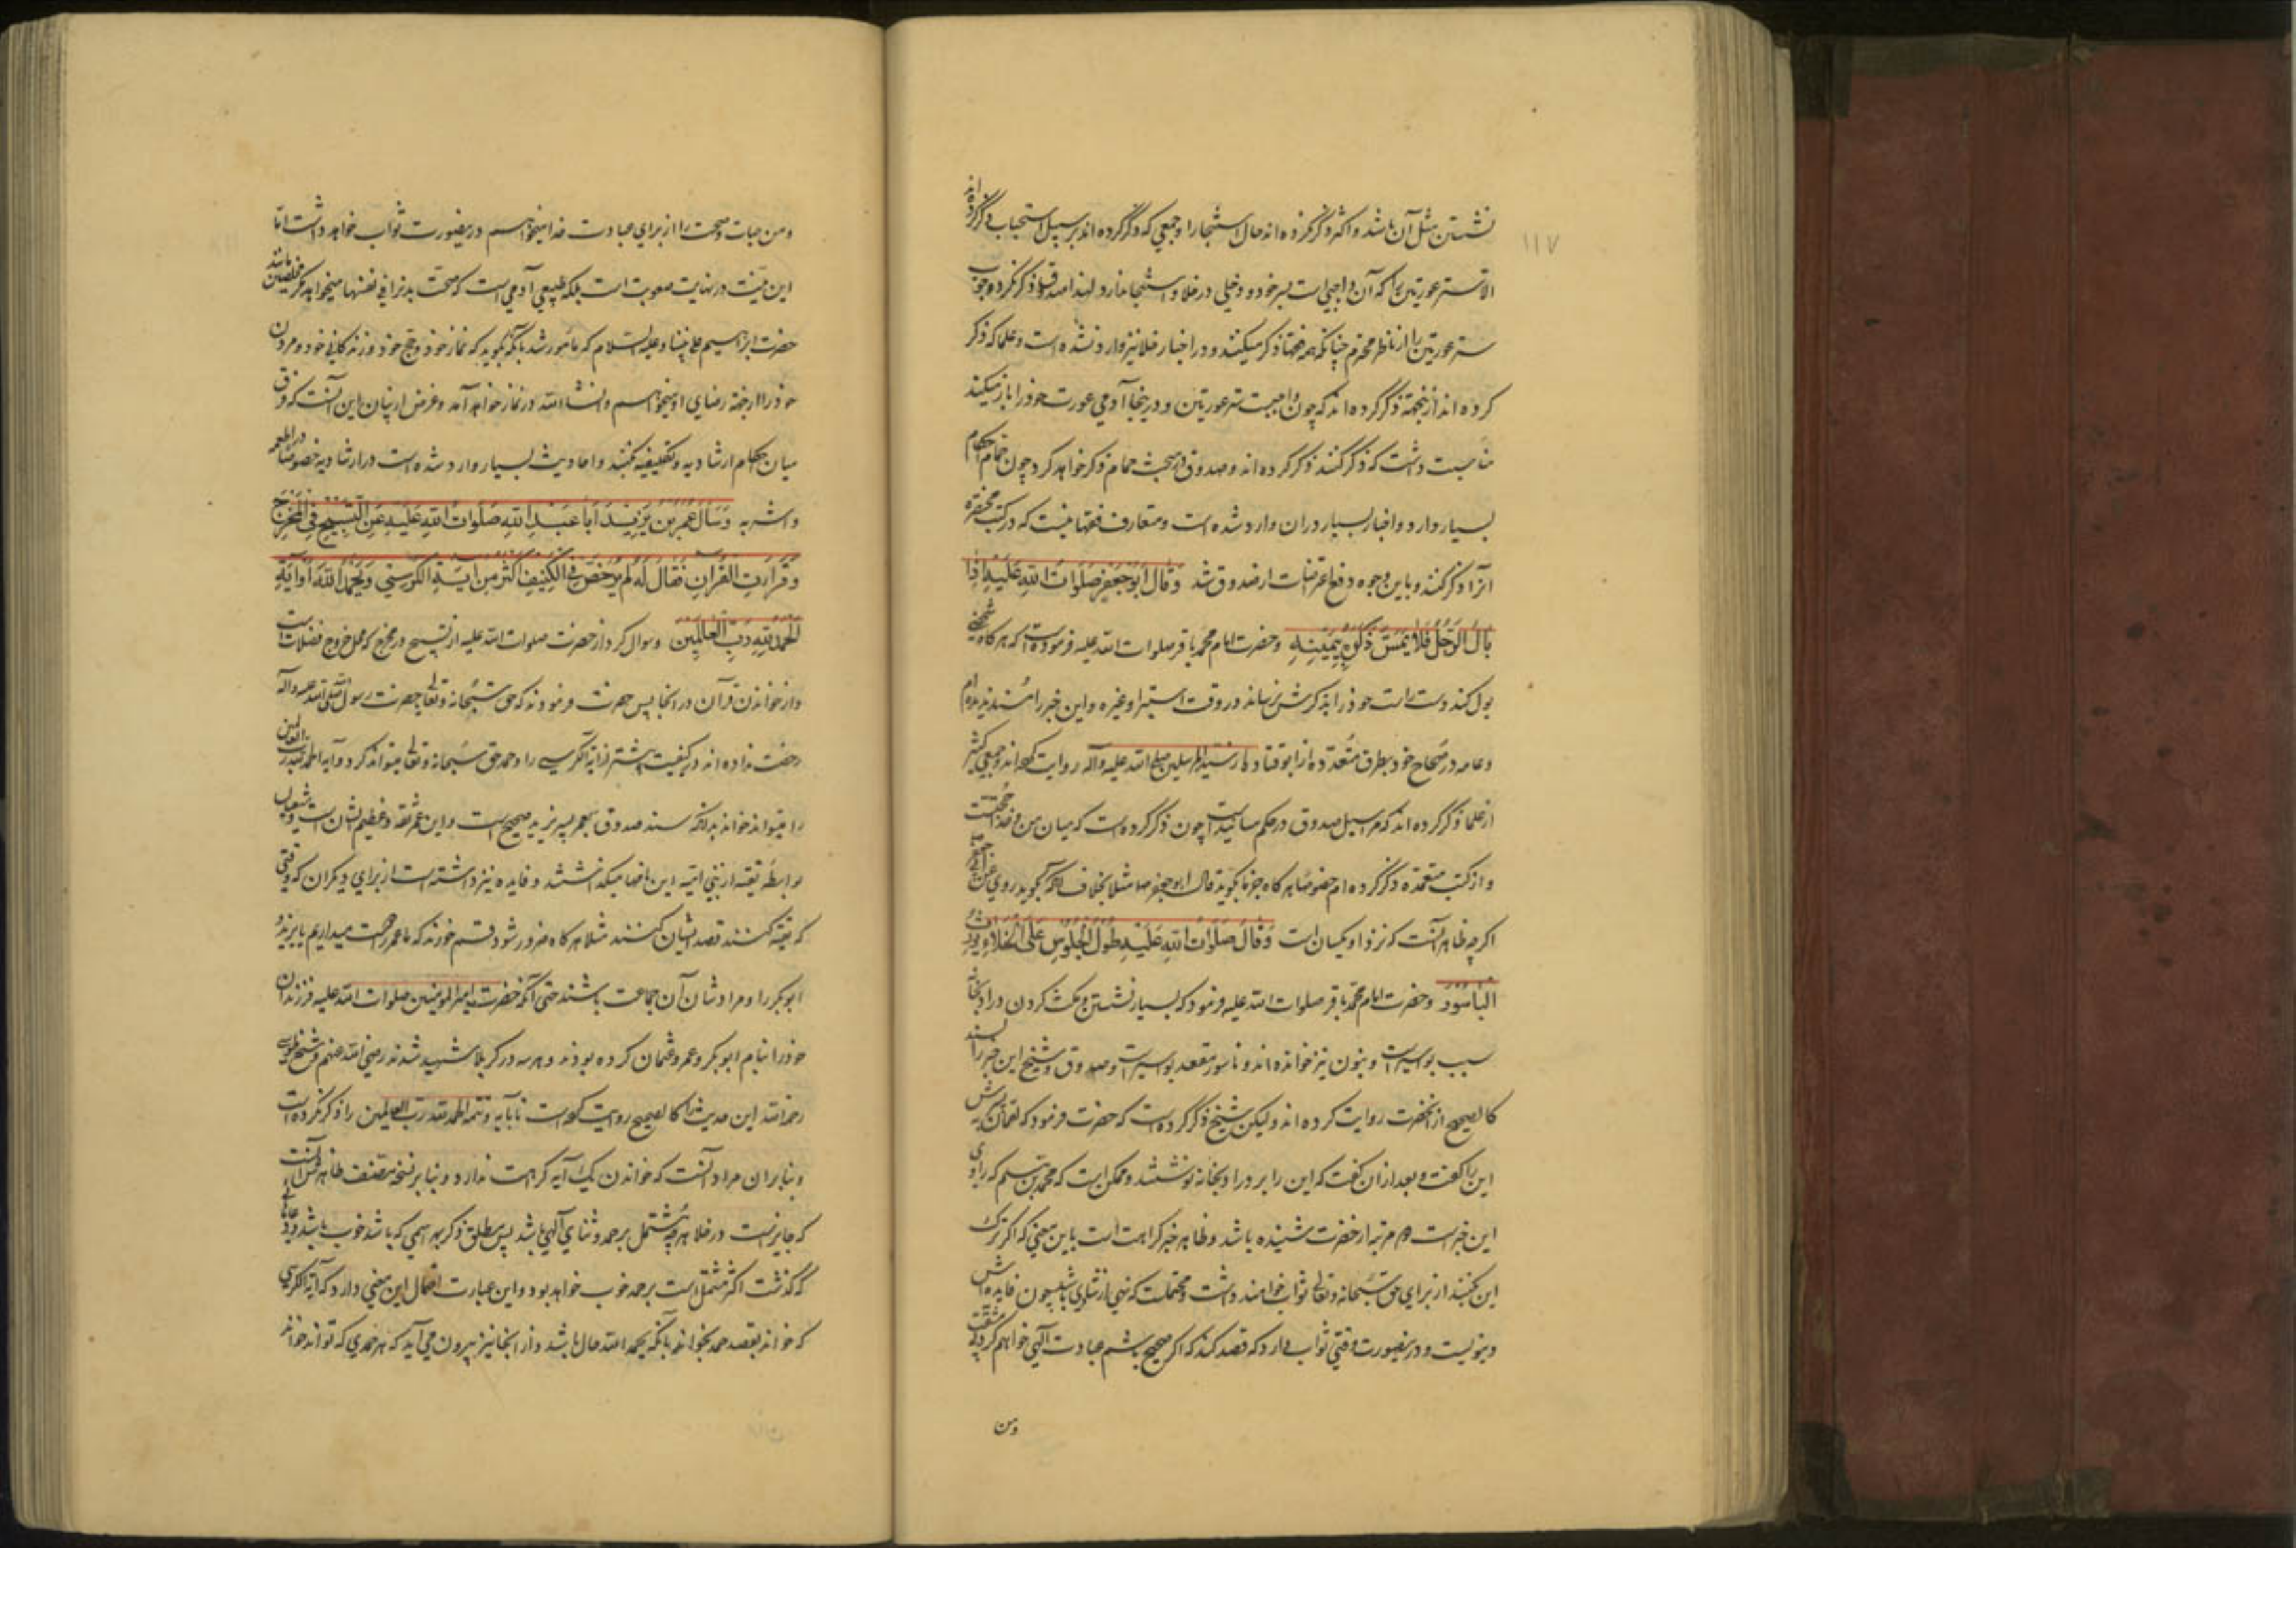 ۱۱۷
نشستن مثل آن باشد و اکثر ذکر نکرده اند حال استنجا را و جمعی که ذکر کرده اند بر سبیل استحباب ذکر کرده اند
الا ستر عورتین را که آن واجبی است بسر خود و دخلی در خلا و استنجا ندارد لهذا صدوق ذکر نکرده وجوب
ستر عورتین را از ناظر محترم چنانکه همه فقها ذکر میکنند و در اخبار خلا نیز وارد نشده است و علما که ذکر
کرده اند از اینجهة ذکر کرده اند که چون واجبست ستر عورتین و در اینجا آدمی عورت خود را باز میکند
مناسبت داشت که ذکر کنند ذکر کرده اند و صدوق در بحث حمام ذکر خواهد کرد چون حمام احکام
بسیار دارد و اخبار بسیار در ان وارد شده است و متعارف فقها نیست که در کتب مختصره
آنرا ذکر کنند و باین وجوه دفع اعتراضات از صدوق شد وَقَالَ اَبُو جَعْفَرٍ صَلَوَاتُ اللهِ عَلَيْهِ اِذَا
بَالَ الرَّجُلُ فَلَا يَمَسَّ ذَكَرَهُ بِيَمِينِهِ و حضرت امام محمد باقر صلوات الله علیه فرموده است که هر کاه شخصی
بول کند دست راست خود را بذکرش نرساند در وقت استبرا و غیره و این خبر را مسند ندیده ام
و عامه در صحاح خود بطرق متعدده از ابو قتاده از سید المرسلین صلی الله علیه وآله روایت کرده اند و جمعی کثیر
از علما ذکر کرده اند که مراسیل صدوق در حکم مسانید است چون ذکر کرده است که میان من و خدا حجتست
و از کتب معتمده ذکر کرده ام خصوصا هر کاه جزما بکوید قال ابو جعفر مثلا بخلاف آنکه بکوید روی عن ابی جعفر
اکرچه ظاهر آنست که نزد او یکسان است وَقَالَ صَلَوَاتُ اللهِ عَلَيْهِ طُولُ الْجُلُوسِ عَلَى الْخَلَاءِ يُورِثُ
الْبَاسُورَ و حضرت امام محمد باقر صلوات الله علیه فرمود که بسیار نشستن و مکث کردن در ادبخانه
سبب بواسیر است و بنون نیز خوانده اند و ناسور مقعد بواسیر است و صدوق و شیخ این خبر را بسند
کالصحیح از انحضرت روایت کرده اند و لیکن شیخ ذکر کرده است که حضرت فرمود که لقمان به پسرش
این را گفت و بعد ازان گفت که این را بر در ادبخانه نوشتند و ممکن است که محمد بن مسلم که راوی
این خبر است دو مرتبه از حضرت شنیده باشد و ظاهر خبر کراهت است باین معنی که اکر ترک
این کنند از برای حق سبحانه و تعالی ثواب خواهند داشت و محتملست که نهی ارشادی باشد چون فایده اش
دنیویست و در ینصورت وقتی ثواب دارد که قصد کند که اکر صحیح باشم عبادت الهی خواهم کرد
ومن
ومن حیات و صحت را از برای عبادت خدا میخواهم درینصورت ثواب خواهد داشت اما
این نیت در نهایت صعوبت است بلکه طبیعی آدمی است که صحت بدنرا فی نفسها میخواهد مکر مخلصین مانند
حضرت ابراهیم علی نبینا و علیه السلام که مامور شد بآنکه بکوید که نماز خود و حج خود و زندکانی خود و مردن
خود را از جهة رضای او میخواهم و انشاء الله در نماز خواهد آمد و غرض از بیان این آنست که فرق
میان احکام ارشادیه و تکلیفیه کنند و احادیث بسیار وارد شده است در ارشادیه خصوصا در اطعمه
واشربه وَسَأَلَ عُمَرُ بْنُ يَزِيدَ اَبَا عَبْدِ اللهِ صَلَوَاتُ اللهِ عَلَيْهِ عَنِ التَّسْبِيحِ فِي الْمَخْرَجِ
وَقِرَاءَةِ الْقُرْآنِ فَقَالَ لَهُ لَمْ يُرَخَّصْ فِي الْكَنِيفِ اَكْثَرُ مِنْ آيَةِ الْكُرْسِيِّ وَيُحْمَدُ اللهُ اَوْ آيَةِ
الْحَمْدُ لِلّٰهِ رَبِّ الْعَالَمِينَ وسوال کرد از حضرت صلوات الله علیه از تسبیح در مخرج که محل خروج فضلات است
واز خواندن قرآن در انجا پس حضرت فرمودند که حق سبحانه و تعالی یا حضرت رسول صلی الله علیه وآله
رخصت نداده اند در کنیف بیشتر از آیة الکرسی را و حمد حق سبحانه و تعالی میتواند کرد و آیه الحمد لله رب العالمین
را میتواند خواند بدانکه سند صدوق بعمر پسر یزید صحیح است و این عمر ثقه و عظیم الشان است و شیعیان
بواسطه تقیه از بنی امیه این نامها میکذاشتند و فایده نیز داشته است از برای دیکران که وقتی
که تقیه کنند قصد ایشان کنند مثلا هر کاه ضرور شود قسم خورند که ما عمر را دوست میداریم یا یزید و
ابو بکر را و مراد شان آن جماعت باشند حتی آنکه حضرت امیر المومنین صلوات الله علیه فرزندان
خود را بنام ابو بکر و عمر و عثمان کرده بودند و هر سه در کربلا شهید شدند رضی الله عنهم و شیخ طوسی
رحمه الله این حدیث را کالصحیح روایت کرده است تا بآیه و تتمه الحمد لله رب العالمین را ذکر نکرده است
و بنا بر ان مراد آنست که خواندن یک آیه کراهت ندارد و بنا بر نسخه مصنف ظاهرش آنست
که جایز است در خلا هرچه مشتمل بر حمد و ثنای الهی باشد پس مطلق ذکر بهر اسمی که باشد خوب باشد و دعای
که گذشت اکثر مشتمل است بر حمد خوب خواهد بود و این عبارت احتمال این معنی دارد که آیة الکرسی
که خواند بقصد حمد بخواند بآنکه یحمد الله حال باشد و از اینجا نیز بیرون می آید که هر حمدی که تواند خواند